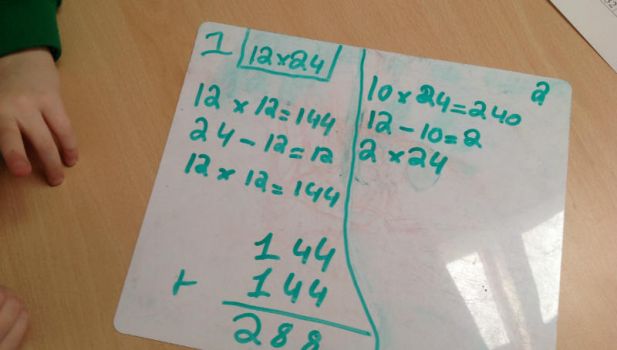 1 12×24
12 × 12=144
24 - 12=12
12 × 12=144
144
+ 144
288
2
10 × 24=240
12 - 10=2
2 × 24